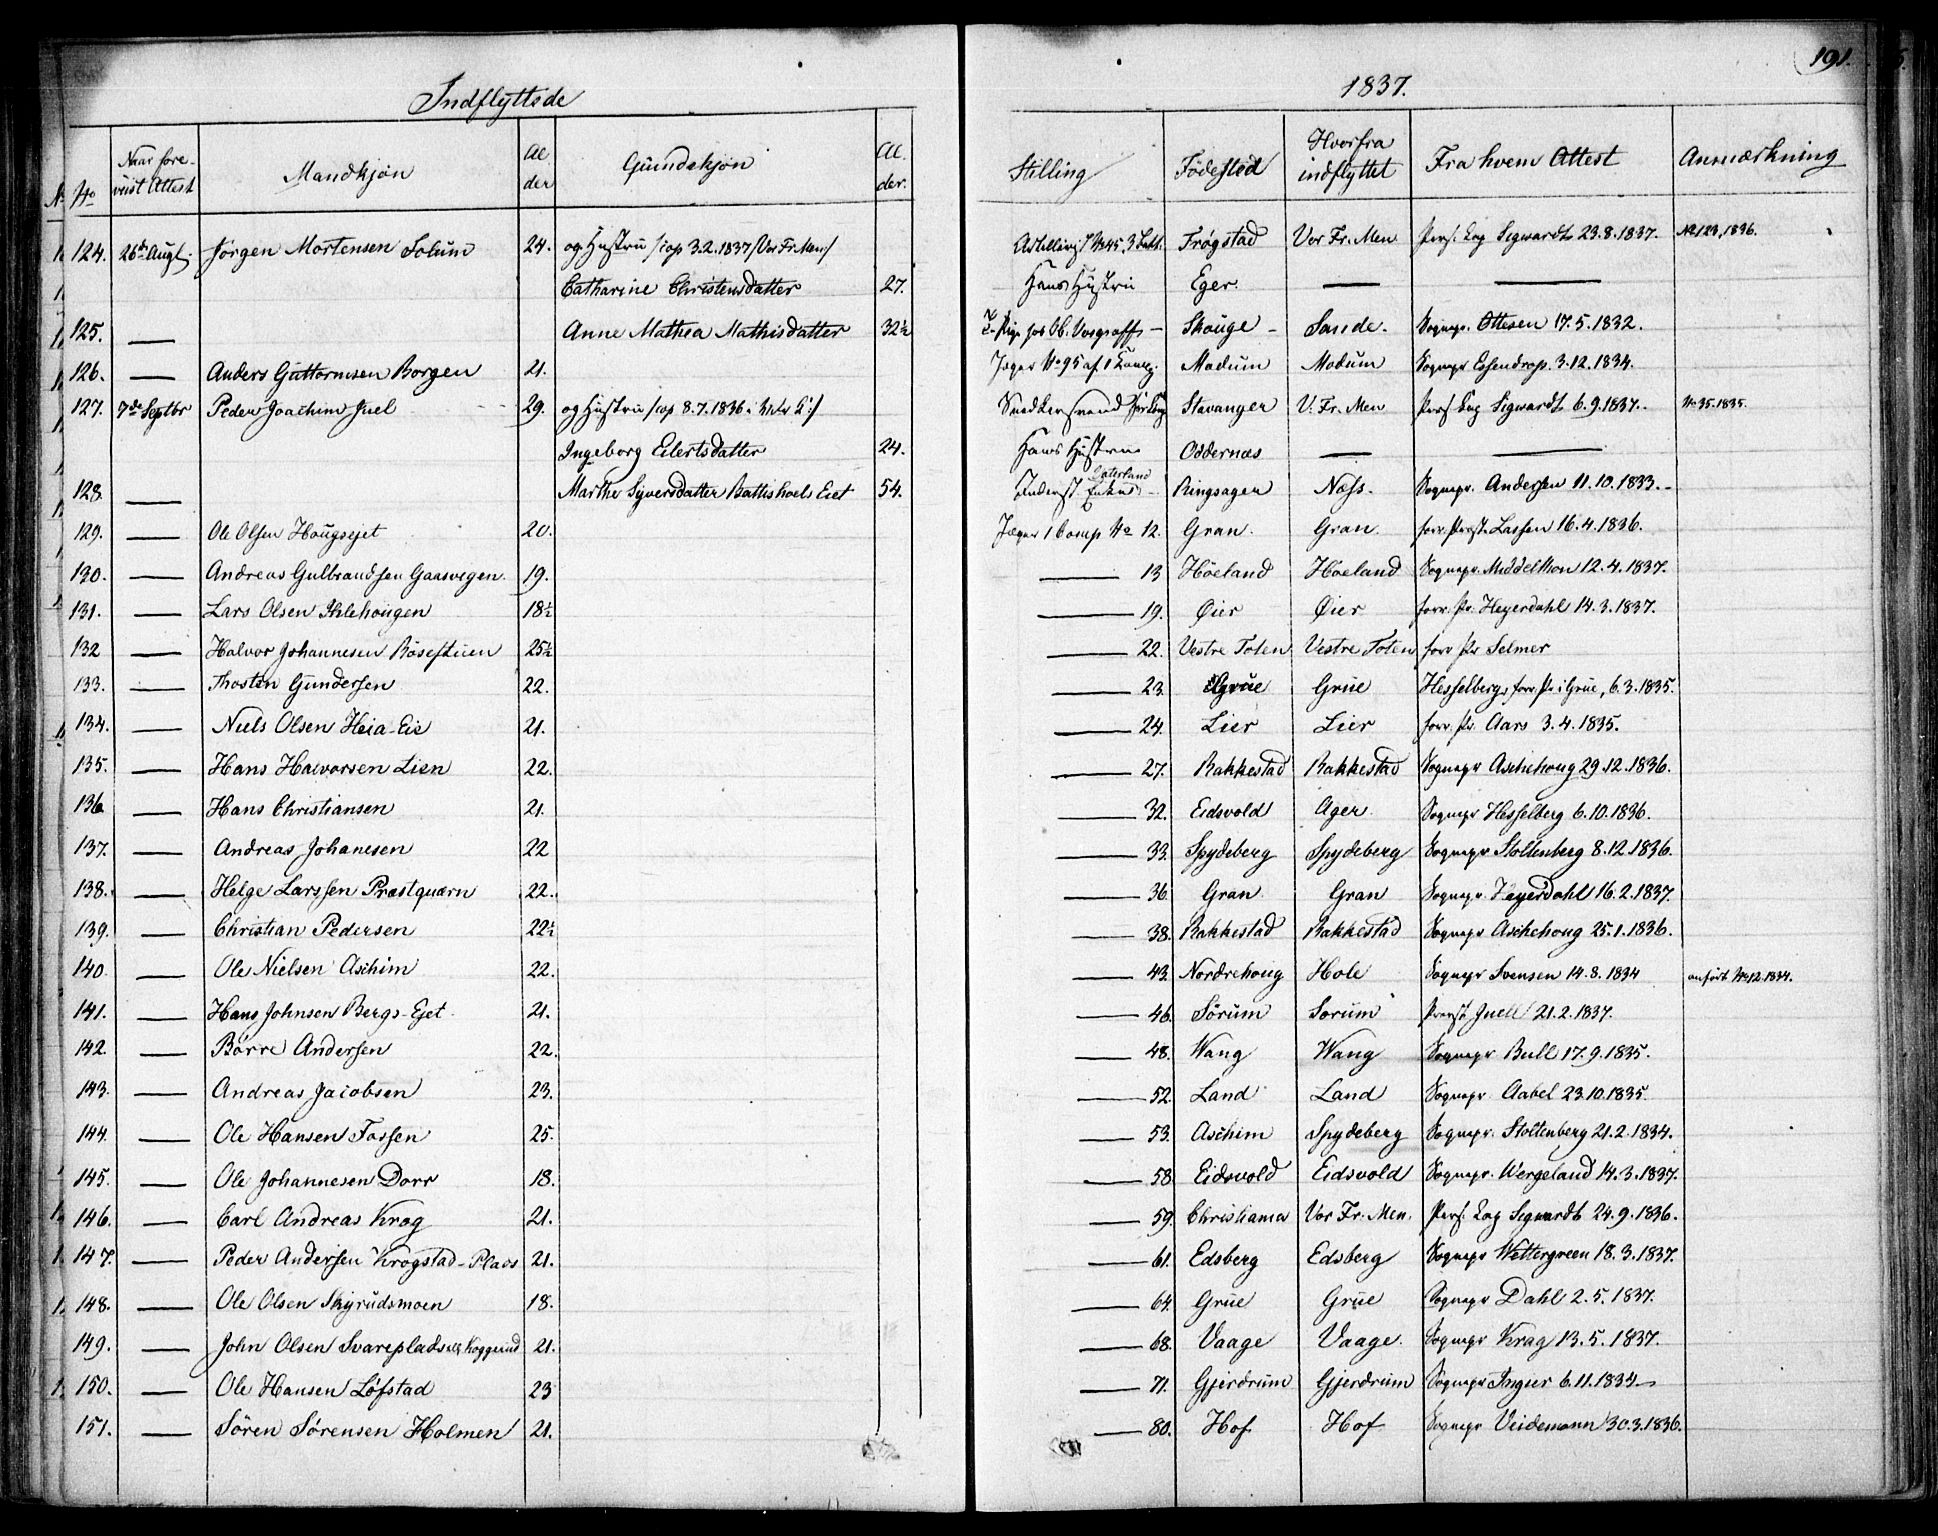 Indflyttsde 1837. 191.
No Naar fore- viist Attest Mandkjøn Al der Qvindekjøn Al. der. Stilling Fødested Hvorfra indflyttet Fra hvem Attest Anmærkning
124. 26de Augt. Jørgen Mortensen Solum 24. og Hustru /cop 3.2.1837/Vor Fr. Men/ Frøgstad Vor Fr. Men Pers. Cap Sigwardt 23.8.1837. No 123, 1836.
Catharine Christensdatter 27. Hans Hustru Eger. — —
125. — Anne Mathea Mathisdatter 32½ Skouge Sande. Sognepr. Ottesen 17.5.1832.
126. — Anders Guttormsen Borgen 21. Jæger No 95 af 1 Comp. Modum Modum Sognepr Essendrop. 3.12.1834.
127. 7de Septbr Peder Joachim Juel 29. og Hustru /cop 8.7.1836 Stavanger V. Fr. Men Pers Cap Sigwardt 6.9.1837. No 35.1835.
Ingeborg Eilertsdatter 24. Hans Hustru Oddernæs — —
128. — Marthe Syversdatter Battishoels Eiet 54. Inderst Enke Vaterland Ringsager Næss. Sognepr. Andersen 11.10.1833.
129. — Ole Olsen Hougsejet 20. Jæger 1 Comp No 12. Gran. Gran. forr. Præst Lassen 16.4.1836.
130. — Andreas Gulbrandsen Gaasvegen. 19. — 13 Høeland Høeland Sognepr. Middelthon 12.4.1837.
131. — Lars Olsen Ihlehougen 18½ — 19. Øier Øier forr. Pr. Heyerdahl 14.3.1837.
132 — Halvor Johannesen Røsestuen 25½ — 22. Vestre Toten Vestre Toten forr Pr Selmer
133. — Thosten Gundersen 22. — 23 Grue Grue Hesselberg, forr. Pr i Grue, 6.3.1835.
134. — Niels Olsen Heia-Eie 21. — 24. Lier Lier forr. Pr. Aars 3.4.1835.
135. — Hans Halvorsen Lien 22. — 27. Rakkestad Rakkestad Sognepr Aschehoug 29.12.1836.
136 — Hans Christiansen 21. — 32. Eidsvold Ager. Sognepr Hesselberg 6.10.1836.
137. — Andreas Johanesen 22 — 33. Spydeberg Spydeberg Sognepr Stoltenberg 8.12.1836.
138. — Helge Larssen Præstqværn 22. — 36 Gran. Gran Sognepr. Heyerdahl 16.2.1837.
139. — Christian Pedersen 22½ — 38. Rakkestad Rakkestad Sognepr Aschehoug 25.1.1836.
140. — Ole Nielsen Aschim 22. — 43. Nordrehoug Hole Sognepr Svensen 14.8.1834 anført No 12.1834.
141. — Hans Johnsen Bergs-Ejet 21. — 46. Sørum Sørum Præst Juell 21.2.1837.
142. — Børre Andersen 22. — 48. Wang Wang Sognepr Bull 17.9.1835.
143. — Andreas Jacobsen 23. — 52. Land Land Sognepr Aabel 23.10.1835.
144. — Ole Hansen Fossen 25. — 53. Aschim Spydeberg Sognepr. Stoltenberg 21.2.1834.
145. — Ole Johannesen Dorr 18. — 58 Eidsvold Eidsvold Sognepr. Wergeland 14.3.1837.
146. — Carl Andreas Krog 21. — 59. Christiania Vor Fr. Men. Pers. Cap Sigwardt 24.9.1836.
147. — Peder Andersen Krogstad-Plads 21. — 61. Edsberg Edsberg Sognepr Wettergreen 18.3.1837.
148. — Ole Olsen Skyrudsmoen 18. — 64. Grue Grue Sognepr Dahl 2.5.1837.
149. — John Olsen Svareplads 21. — 68. Vaage Vaage. Sognepr Krag 13.5.1837.
150. — Ole Hansen Løfstad 23 — 71. Gjerdrum Gjerdrum Sognepr Ingier 6.11.1834
151. — Søren Sørensen Holmen 21. — 80. Hof Hof Sognepr Veidemann 30.3.1836.